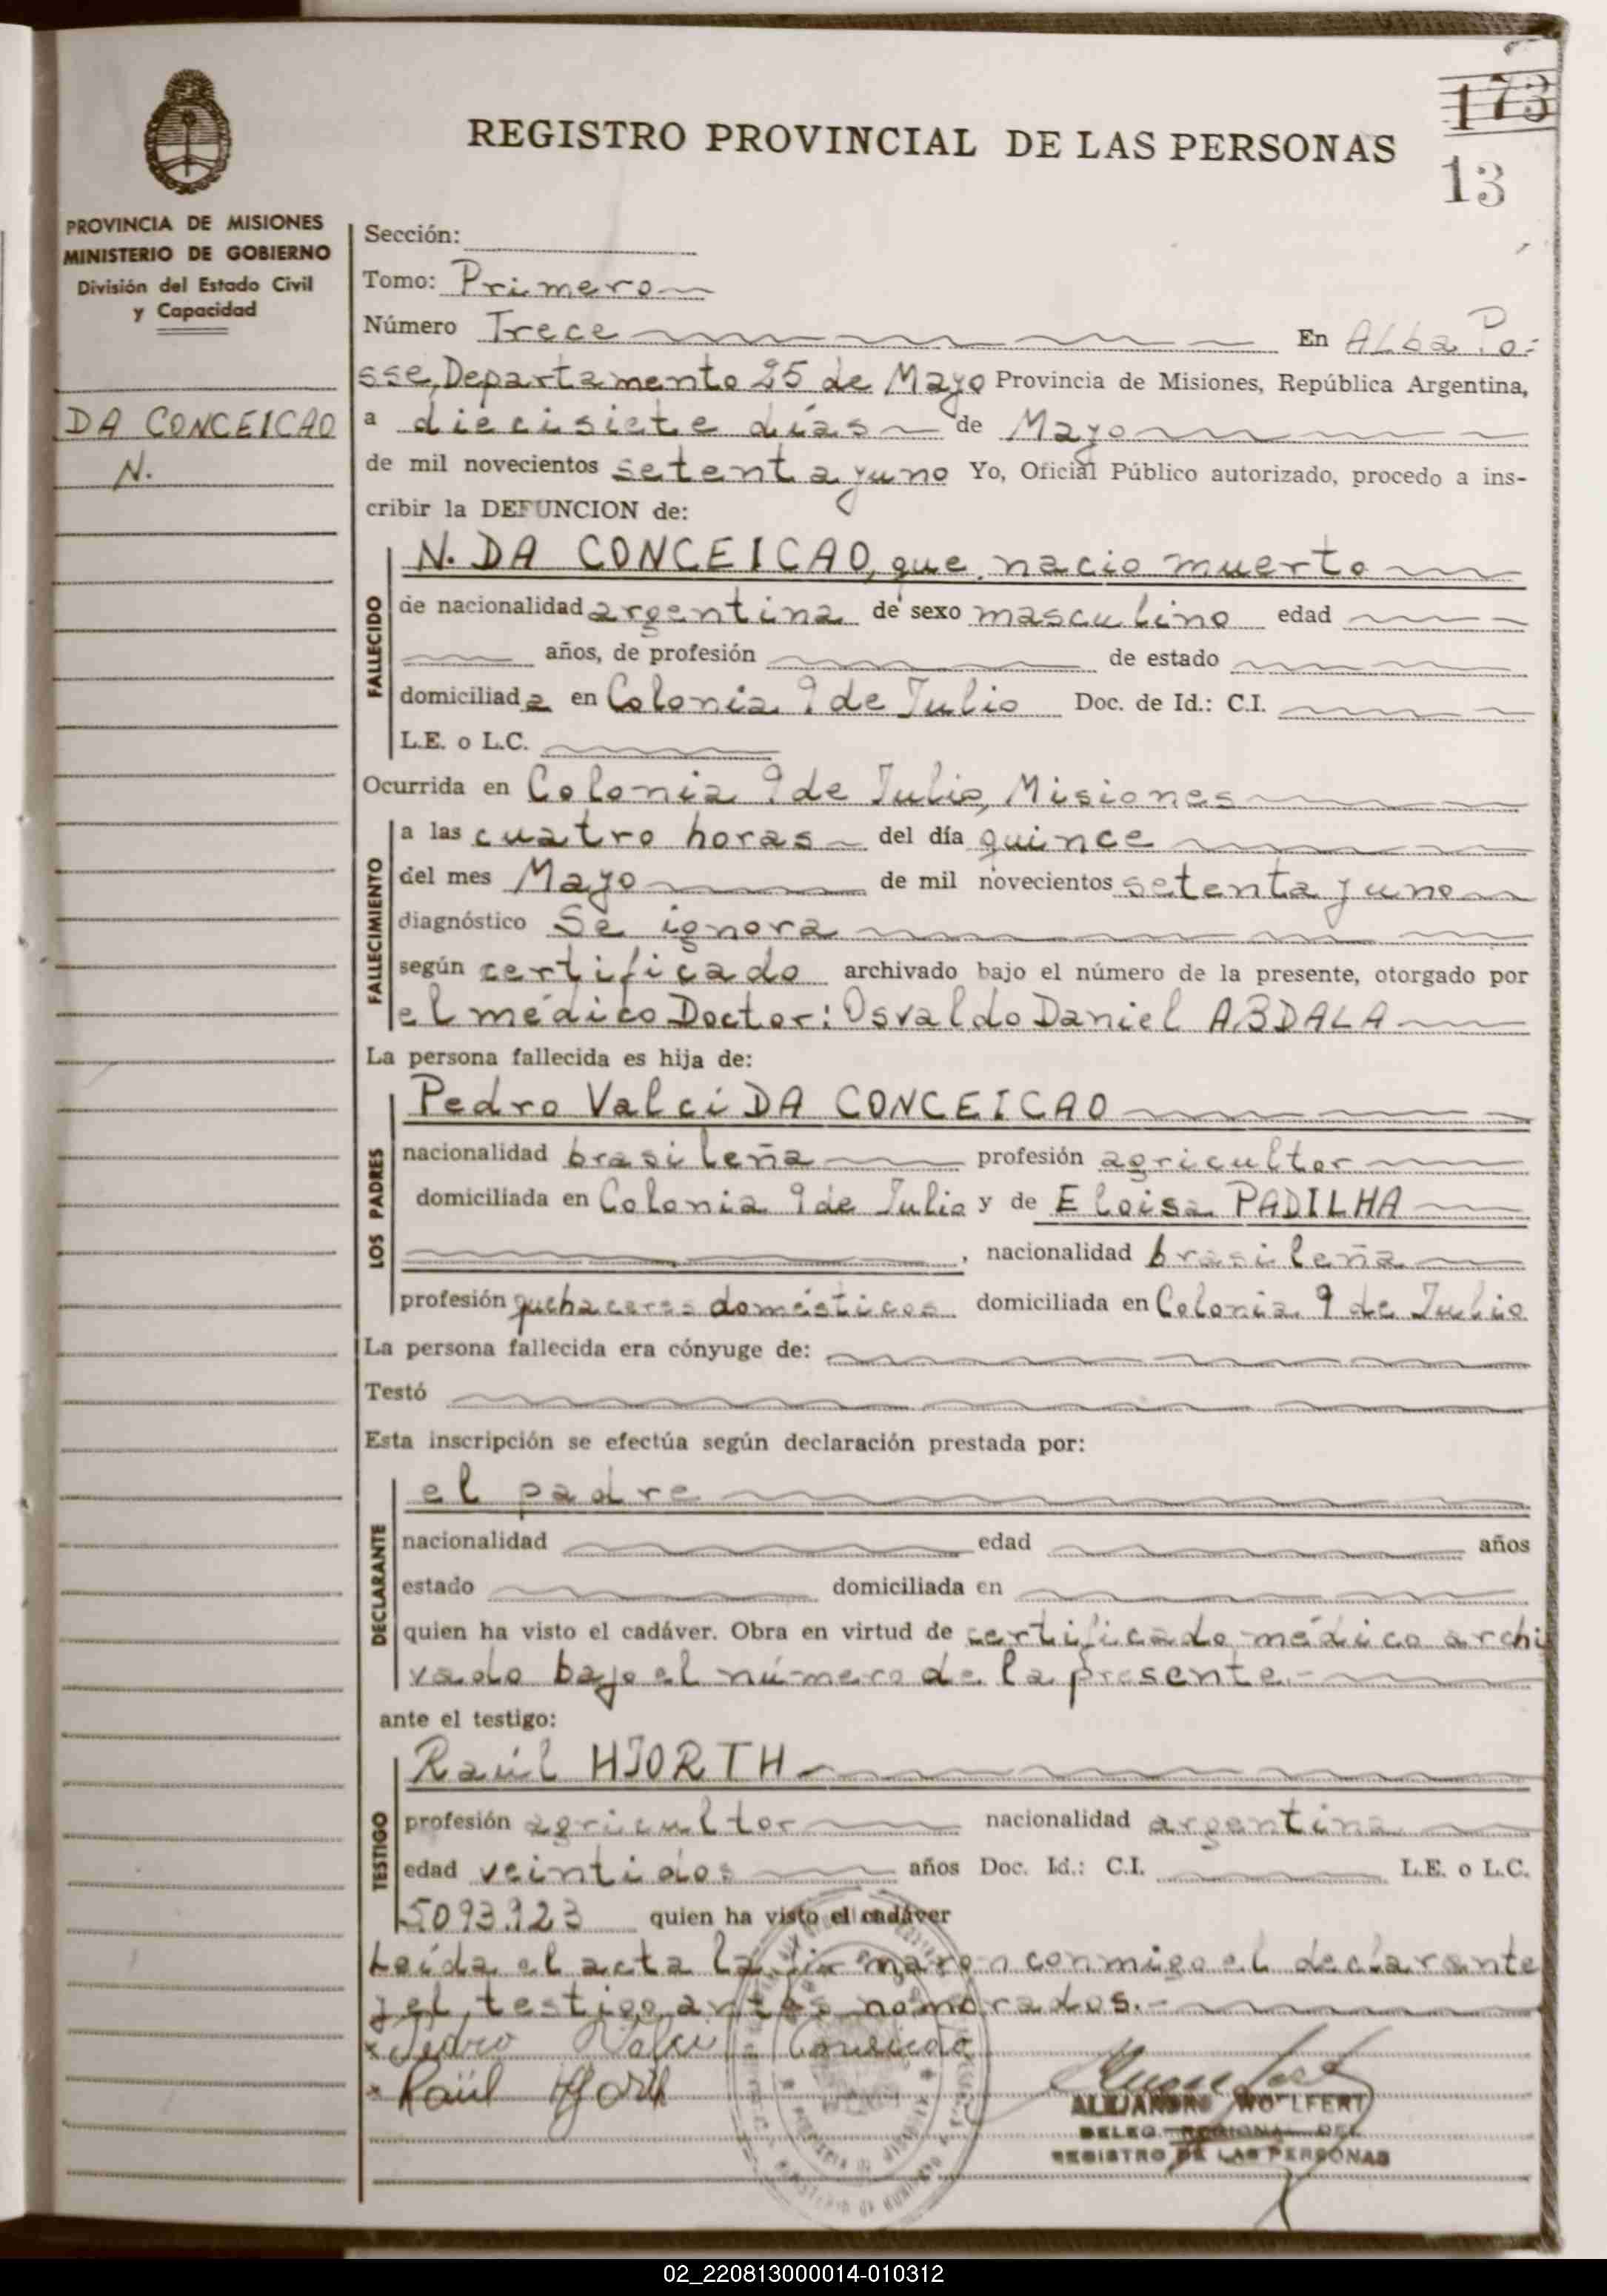 173
REGISTRO PROVINCIAL DE LAS PERSONAS
13
PROVINCIA DE MISIONES
MINISTERIO DE GOBIERNO
División del Estado Civil
y Capacidad
DA CONCEICAO
N.
Sección:
Tomo: Primero
Número Trece En Alba Po-
sse, Departamento 25 de Mayo Provincia de Misiones, República Argentina,
a diecisiete días de Mayo
de mil novecientos setenta y uno Yo, Oficial Público autorizado, procedo a ins-
cribir la DEFUNCION de:
FALLECIDO
N. DA CONCEICAO, que nacio muerto
de nacionalidad argentina de sexo masculino edad
años, de profesión de estado
domiciliada en Colonia 9 de Julio Doc. de Id.: C.I.
L.E. o L.C.
Ocurrida en Colonia 9 de Julio, Misiones
FALLECIMIENTO
a las cuatro horas del día quince
del mes Mayo de mil novecientos setenta y uno
diagnóstico Se ignora
según certificado archivado bajo el número de la presente, otorgado por
el médico Doctor: Osvaldo Daniel ABDALA
La persona fallecida es hija de:
LOS PADRES
Pedro Valci DA CONCEICAO
nacionalidad brasileña profesión agricultor
domiciliada en Colonia 9 de Julio y de Eloisa PADILHA
, nacionalidad brasileña
profesión quehaceres domésticos domiciliada en Colonia 9 de Julio
La persona fallecida era cónyuge de:
Testó
Esta inscripción se efectúa según declaración prestada por:
DECLARANTE
el padre
nacionalidad edad años
estado domiciliada en
quien ha visto el cadáver. Obra en virtud de certificado médico archi
vado bajo el número de la presente.-
ante el testigo:
TESTIGO
Raúl HJORTH
profesión agricultor nacionalidad argentina
edad veintidos años Doc. Id.: C.I. L.E. o L.C.
5093.923 quien ha visto el cadáver
Leída el acta la firmaron conmigo el declarante
y el testigo antes nombrados.-
x Pedro Valci Conceicão
x Raúl Hjorth
ALEJANDRO WOLFERT
DELEG. REGIONAL DEL
REGISTRO DE LAS PERSONAS
02_220813000014-010312